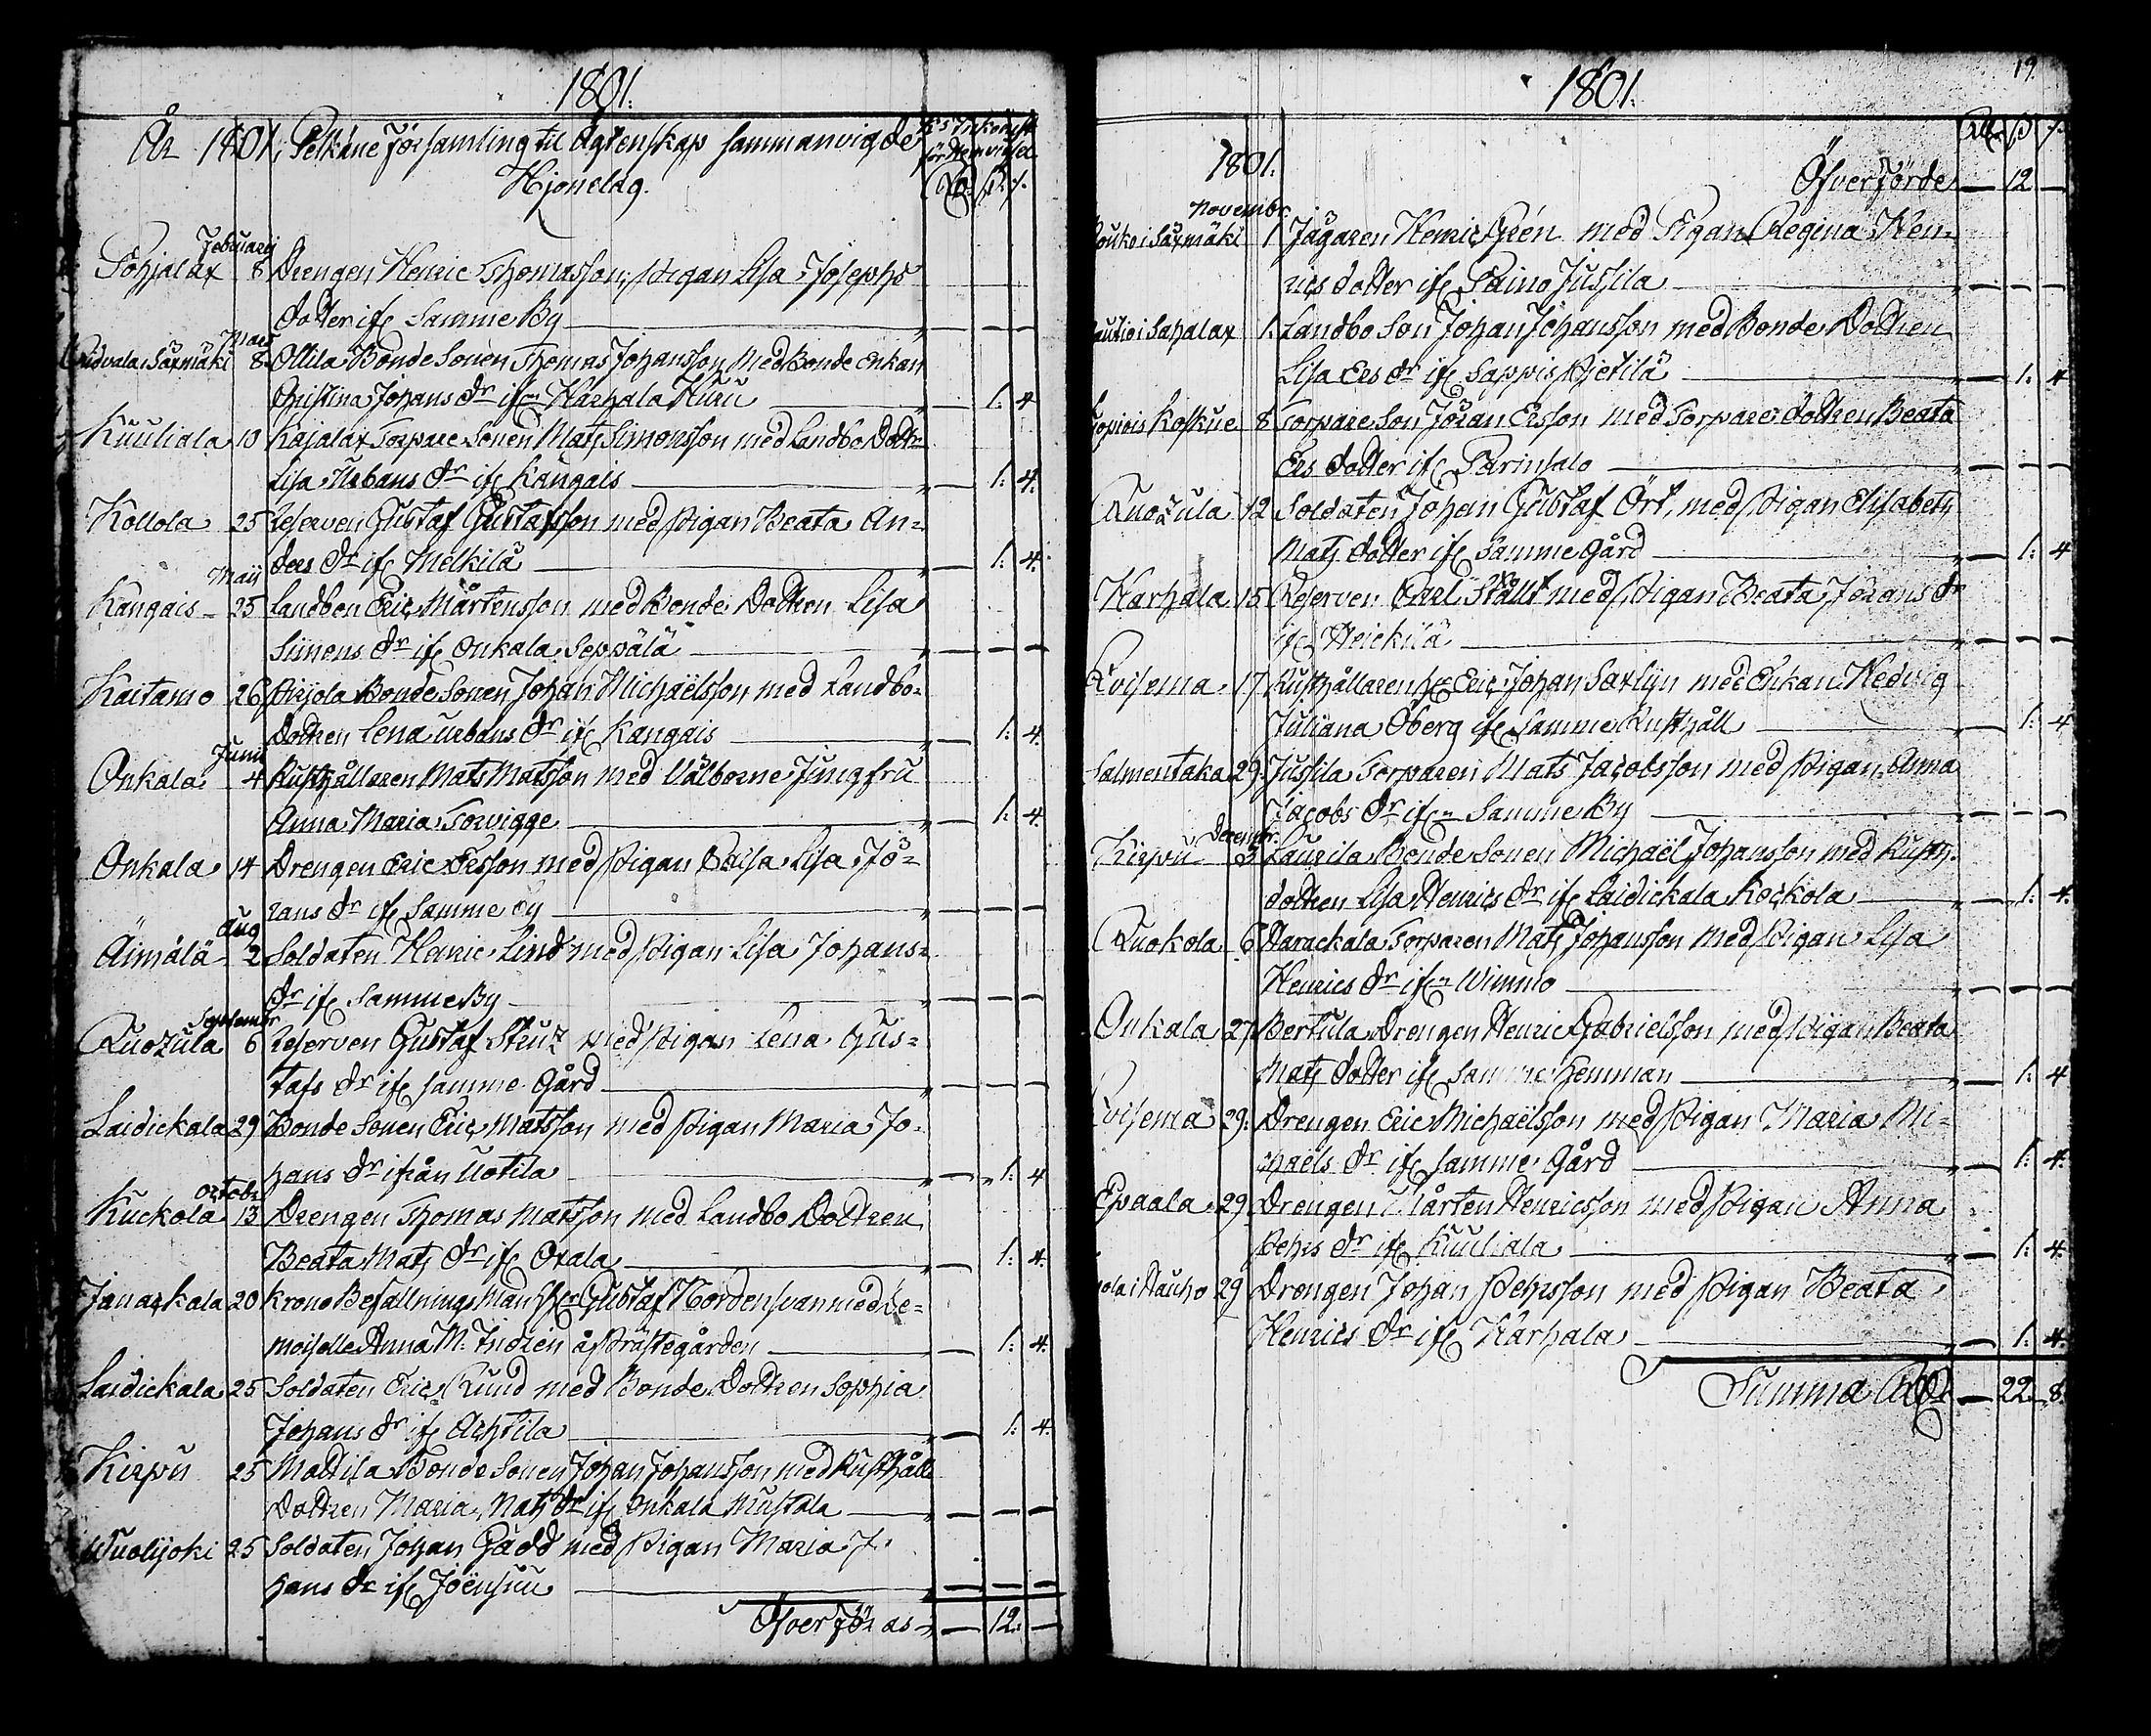 1801.
År 1801, Pelkäne Församling til Ägtenskap sammanvigde
Hjonelag.
Februarij
Pohjalax 8 Drengen Henric Thomasson, Pigan Lisa Josephs
dotter if: Samme By
Mars
Säxmäki 8 Ollila Bonde Sonen Thomas Johansson Med Bonde Enkan
Christina Johans dr ifrn Harhala Huru 1. 4
Kuuliala 10 Kajalax Torpare Sonen Mats Simonsson med Landbo Dottr
Lisa Urbans dr if: Kangais 1. 4.
Kollola 25 Reserven Gustaf Gustafsson med Pigan Beata An=
ders dr if: Melkilä 1. 4.
Maij
Kangais 25 Landbon Eric Mårtensson med Bonde Dottren Lisa
Simons dr if: Onkala Seppälä
Kaitamo 26 Pirjola Bonde Sonen Johan Michaëlsson med Landbo=
Dottren Lena Urbans dr if: Kangais 1. 4.
Junii
Onkala 4 Rusthållaren Mats Matsson med Välborne Jungfru
Anna Maria Torwigge 1. 4.
Onkala 14 Drengen Eric Ersson med Pigan Caisa Lisa Jö=
rans dr if: Samme By
Aug
Äimälä 2 Soldaten Henric Lind med Pigan Lisa Johans=
dr if: Samme By
Septembr
Ruozula 6 Reserven Gustaf Strutz med Pigan Lena Gus=
tafs dr if: samme Gård
Laidickala 29 Bonde Sonen Eric Matsson med Pigan Maria Jo=
hans dr ifrån Uotila 1. 4
Octobr
Kuckola 13 Drengen Thomas Matsson med Landbo Dottren
Beata Mats dr if: Oxala 1. 4.
Janackala 20 Krono Befallnings Man Hr Gustaf Nordensvan med De=
moiselle Anna M. Indren af Prästegården 1. 4.
Laidickala 25 Soldaten Eric Rund med Bonde Dottren Sophia
Johans dr if: Achtila 1. 4.
Kirpu 25 Mattila Bonde Sonen Johan Johansson med Rusthålls
Dottren Maria Mats dr if: Onkala Mustala
Wuolijoki 25 Soldaten Johan Gädd med Pigan Maria J
hans dr if: Joënsuu
Öfverföras 12.
19.
1801.
1801.
Öfverförde 12
Novembr.
Säxmäki 1 Jägaren Henric Grén med Pigan Regina Hen=
rics dotter if: Paino Jussila
i Sahalax 1. Landbo Son Johan Johansson med Bonde Dottren
Lisa Ers dr if: Sappis Pietilä 1. 4
Koskue 8 Torpare Son Jöran Ersson med Torpare dottren Beata
Ers dotter if: Parinsalo
Ruozula 12 Soldaten Johan Gustaf Ört, med Pigan Elisabeth
Mats dotter if: Samme Gård 1. 4
Harhala 15 Reserven Carl Ställt med Pigan Beata Jörans dr
if: Heickilä
Roisema 17 Rusthållaren Hr Eric Johan Saxlijn med Enkan Hedvig
Juliana Öberg if: Samme Rusthåll 1. 4
Salmentaka 29. Jussila Torparen Mats Jacobsson med Pigan Anna
Jacobs dr ifrn Samme By
Decembr.
Kirpu 3 Laurila Bonde Sonen Michaël Johansson med Rusth.
dottren Lisa Henrics dr if: Laidickala Kockola 1. 4.
Ruokola 6 Harackala Torparen Mats Johansson med Pigan Lisa
Henrics dr ifrn Wimmo
Onkala 27 Bertula Drengen Henric Gabrielsson med Pigan Beata
Mats dotter if: Samme Hemman 1. 4
Roisema 29. Drengen Eric Michaëlsson med Pigan Maria Mi=
chaëls dr if: samme Gård 1. 4.
Epaala 29. Drengen Mårten Henricsson med Pigan Anna
Pehrs dr if: Kuuliala 1. 4.
i Hauho 29 Drengen Johan Pehrsson med Pigan Beata
Henrics dr if: Harhala 1. 4.
Summa 22. 8.